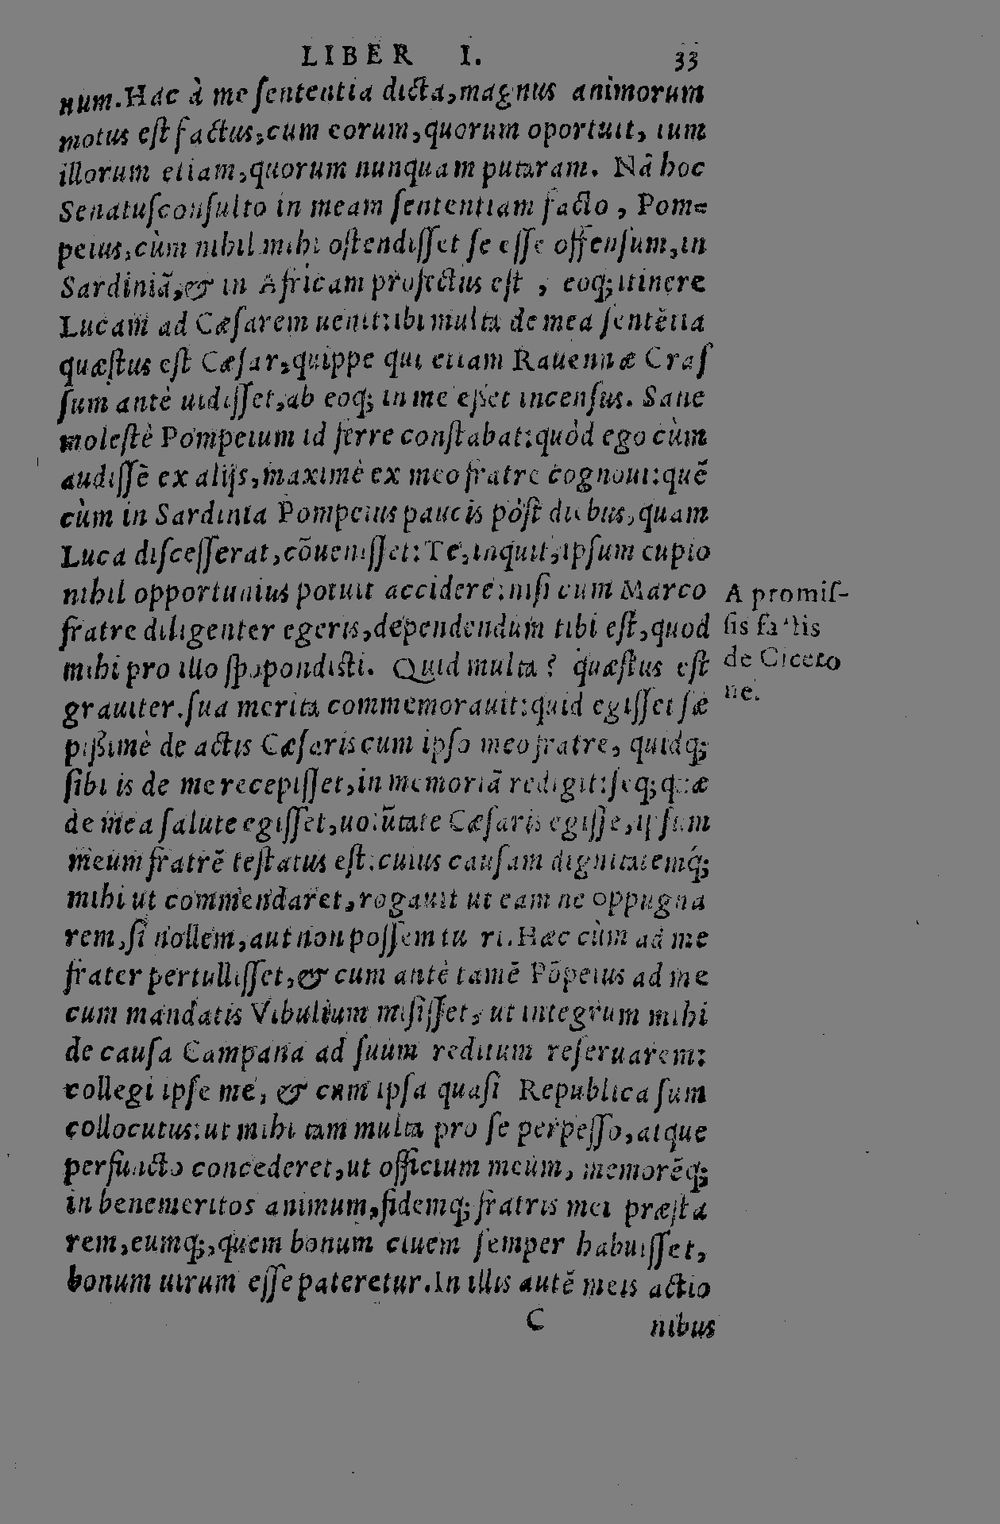 LIBER I. 33
num. Hac à me sententia dicta, magnus animorum
motus est factus, cum eorum, quorum oportuit, tum
illorum etiam, quorum nunquam putaram. Nã hoc
Senatusconsulto in meam sententiam facto, Pom=
peius, cùm nihil mihi ostendisset se esse offensum, in
Sardiniã, & in Africam profectus est, eoq; itinere
Lucam ad Cæsarem uenit: ibi multa de mea sentẽtia
quæstus est Cæsar, quippe qui etiam Rauennæ Cras
sum antè uidisset, ab eoq; in me esset incensus. Sane
molestè Pompeium id ferre constabat: quòd ego cùm
audissẽ ex alijs, maximè ex meo fratre cognoui: quẽ
cùm in Sardinia Pompeius paucis pòst diebus, quam
Luca discesserat, cõuenisset: Te, inquit, ipsum cupio
nihil opportunius potuit accidere: nisi cum Marco
fratre diligenter egeris, dependendum tibi est, quod
mihi pro illo spopondisti. Quid multa? quæstus est
grauiter. sua merita commemorauit: quid egisset sæ
pißimè de actis Cæsaris cum ipso meo fratre, quidq;
sibi is de me recepisset, in memoriã redigit: seq; quæ
de mea salute egisset, uolũtate Cæsaris egisse, ipsum
meum fratrẽ testatus est. cuius causam dignitatemq́;
mihi ut commendaret, rogauit ut eam ne oppugna
rem, si nollem, aut non possem tu ri. Hæc cùm ad me
frater pertullisset, & cum antè tamẽ Põpeius ad me
cum mandatis Vibullium misisset, ut integrum mihi
de causa Campana ad suum reditum reseruarem:
collegi ipse me, & cum ipsa quasi Republica sum
collocutus: ut mihi tam multa pro se perpesso, atque
perfuncto concederet, ut officium meum, memorẽq;
in benemeritos animum, fidemq; fratris mei præsta
rem, eumq;, quem bonum ciuem semper habuisset,
bonum uirum esse pateretur. In illis autẽ meis actio
C nibus
A promis-
sis factis
de Cicero
ne.